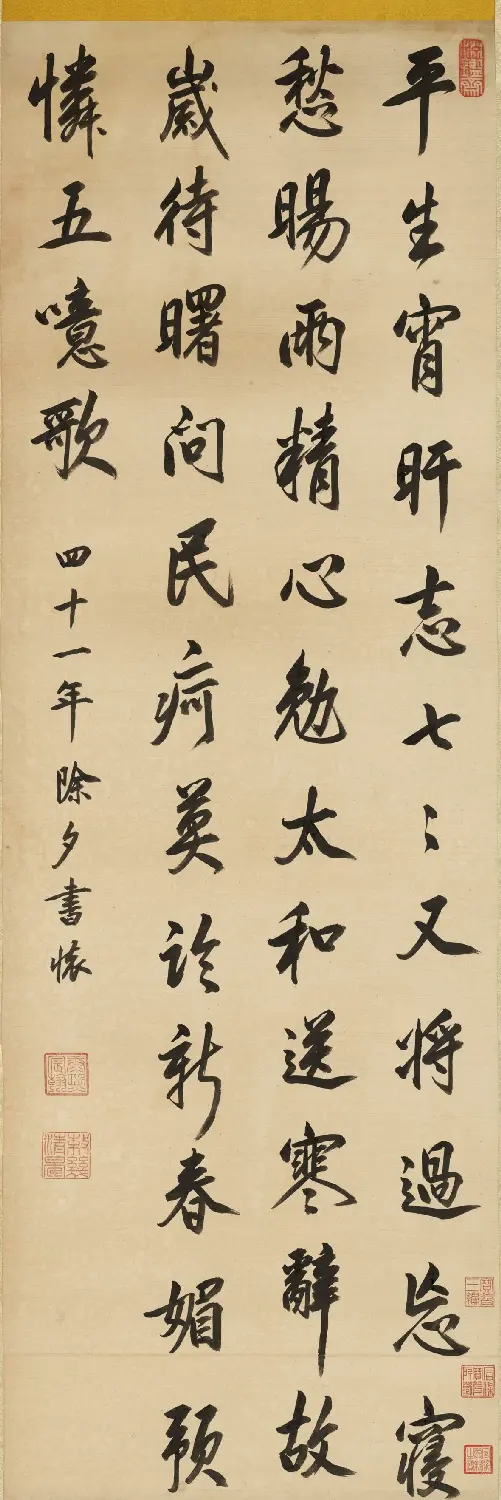 平生宵旰志七〻又將過忘寢
愁暘雨精心勉太和送寒辭故
歲待曙問民痾莫論新春媚預
憐五噫歌
四十一年除夕書懷